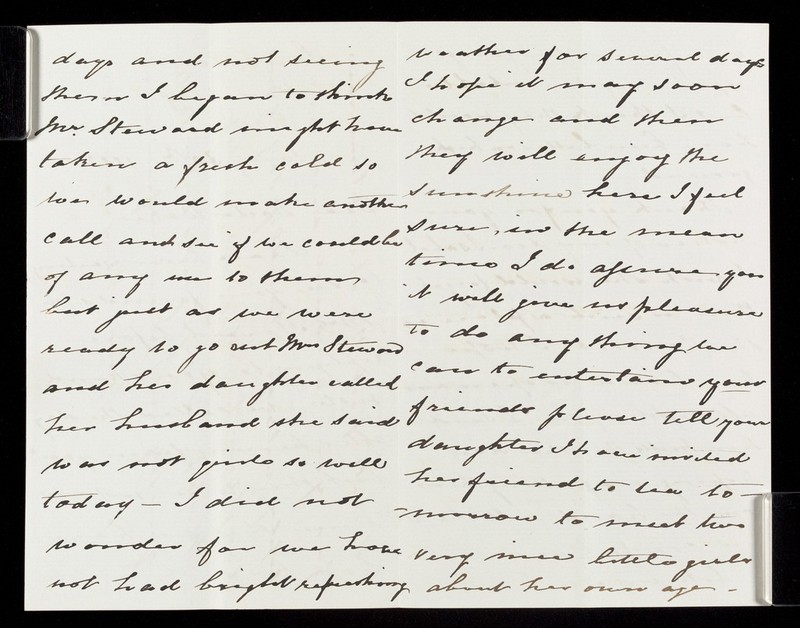 days and not seeing
them I began to think
Mr. Steward might have
taken a fresh cold so
we would make another
call and see if we could be
of any use to them
but just as we were
ready to go out Mrs Steward
and her daughter called
her husband she said
was not quite so well
today — I did not
wonder for we have
not had bright refreshing
weather for several days
I hope it may soon
change and then
they will enjoy the
sunshine here I feel
sure, in the mean
time I do assure you
it will give us pleasure
to do any thing we
can to entertain your
friends please tell your
daughter I have invited
her friend to tea to-
-morrow to meet two
very nice little girls
about her own age -